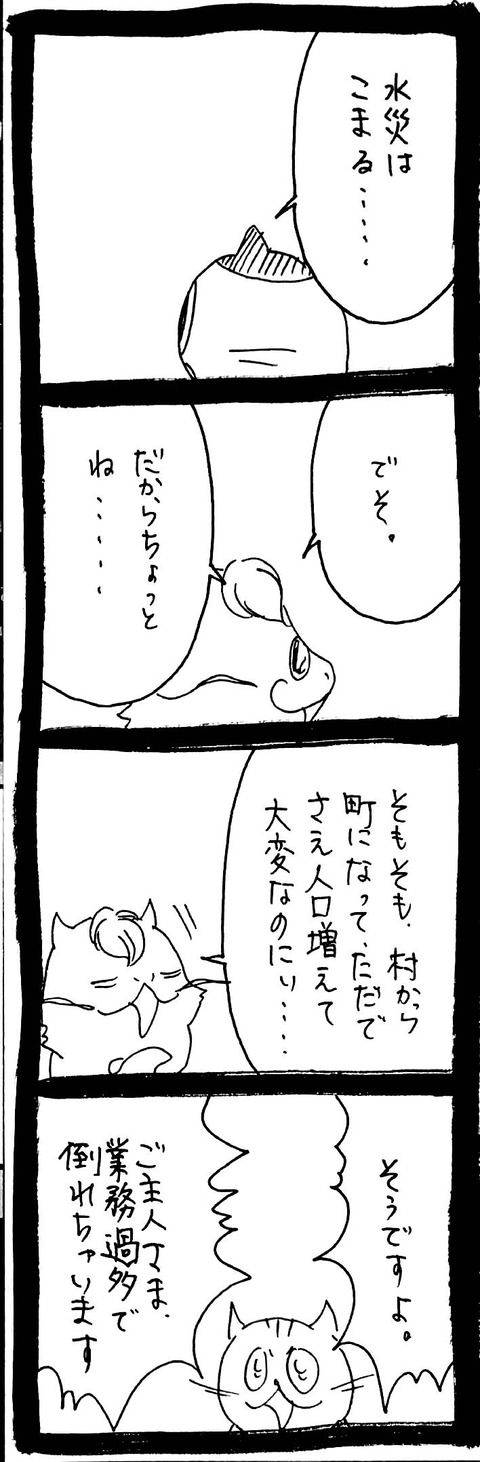 水災は
こまる‥‥‥
でそ。
だからちょっと
ね‥‥‥
そもそも、村から
町になって、ただで
さえ人口増えて
大変なのにぃ‥‥
そうですよ。
ご主人さま、
業務過多で
倒れちゃいます